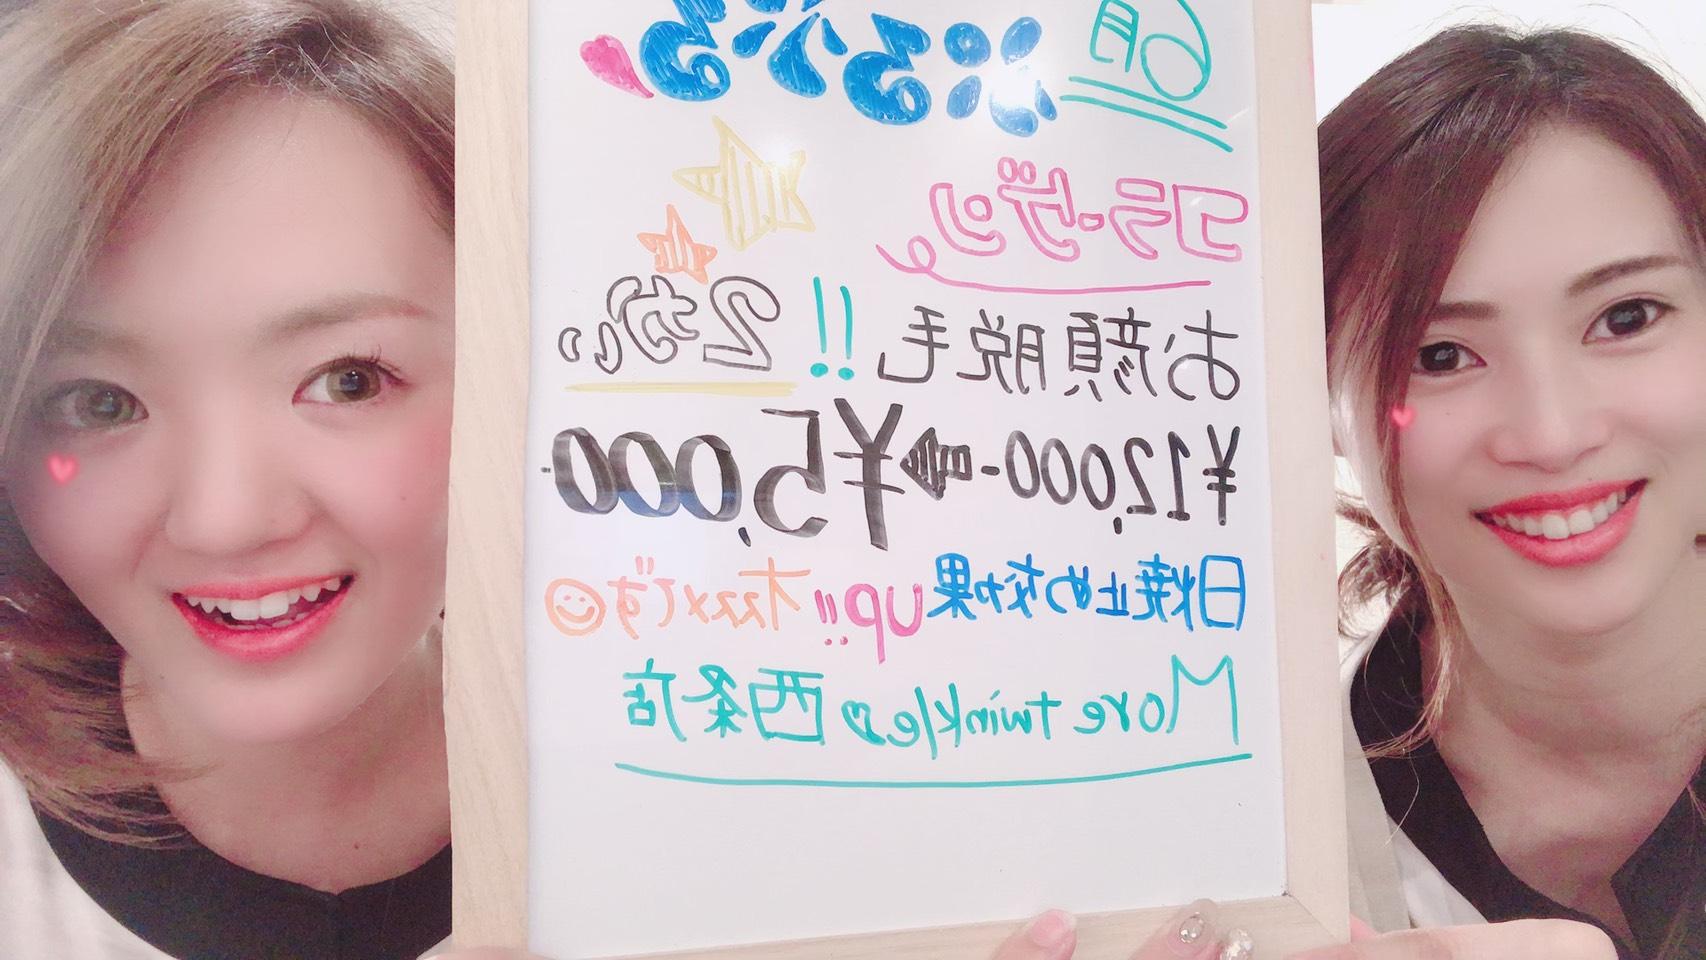 6月
ぷるぷる
コラーゲン
お顔脱毛!! 2かい
¥12,000- ➡ ¥5,000-
日焼止め効果UP!! オススメです
More twinkle 西条店